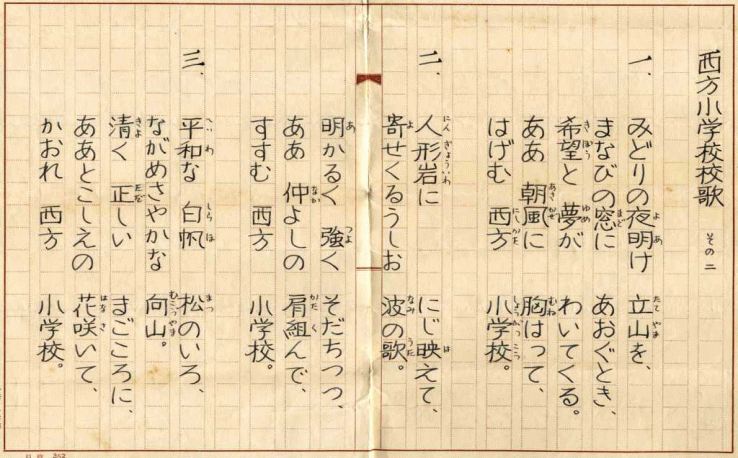 西方小学校校歌 その二
一、
みどりの夜明け 立山を、
まなびの窓に あおぐとき、
希望と 夢が わいてくる。
ああ 朝風に 胸はって、
はげむ 西方 小学校。
二、
人形岩に にじ映えて、
寄せくるうしお 波の歌。
明かるく 強く そだちつつ、
ああ 仲よしの 肩組んで、
すすむ 西方 小学校。
三、
平和な 白帆 松のいろ、
ながめさやかな 向山。
清く 正しい まごころに、
ああとこしえの 花咲いて、
かおれ 西方 小学校。